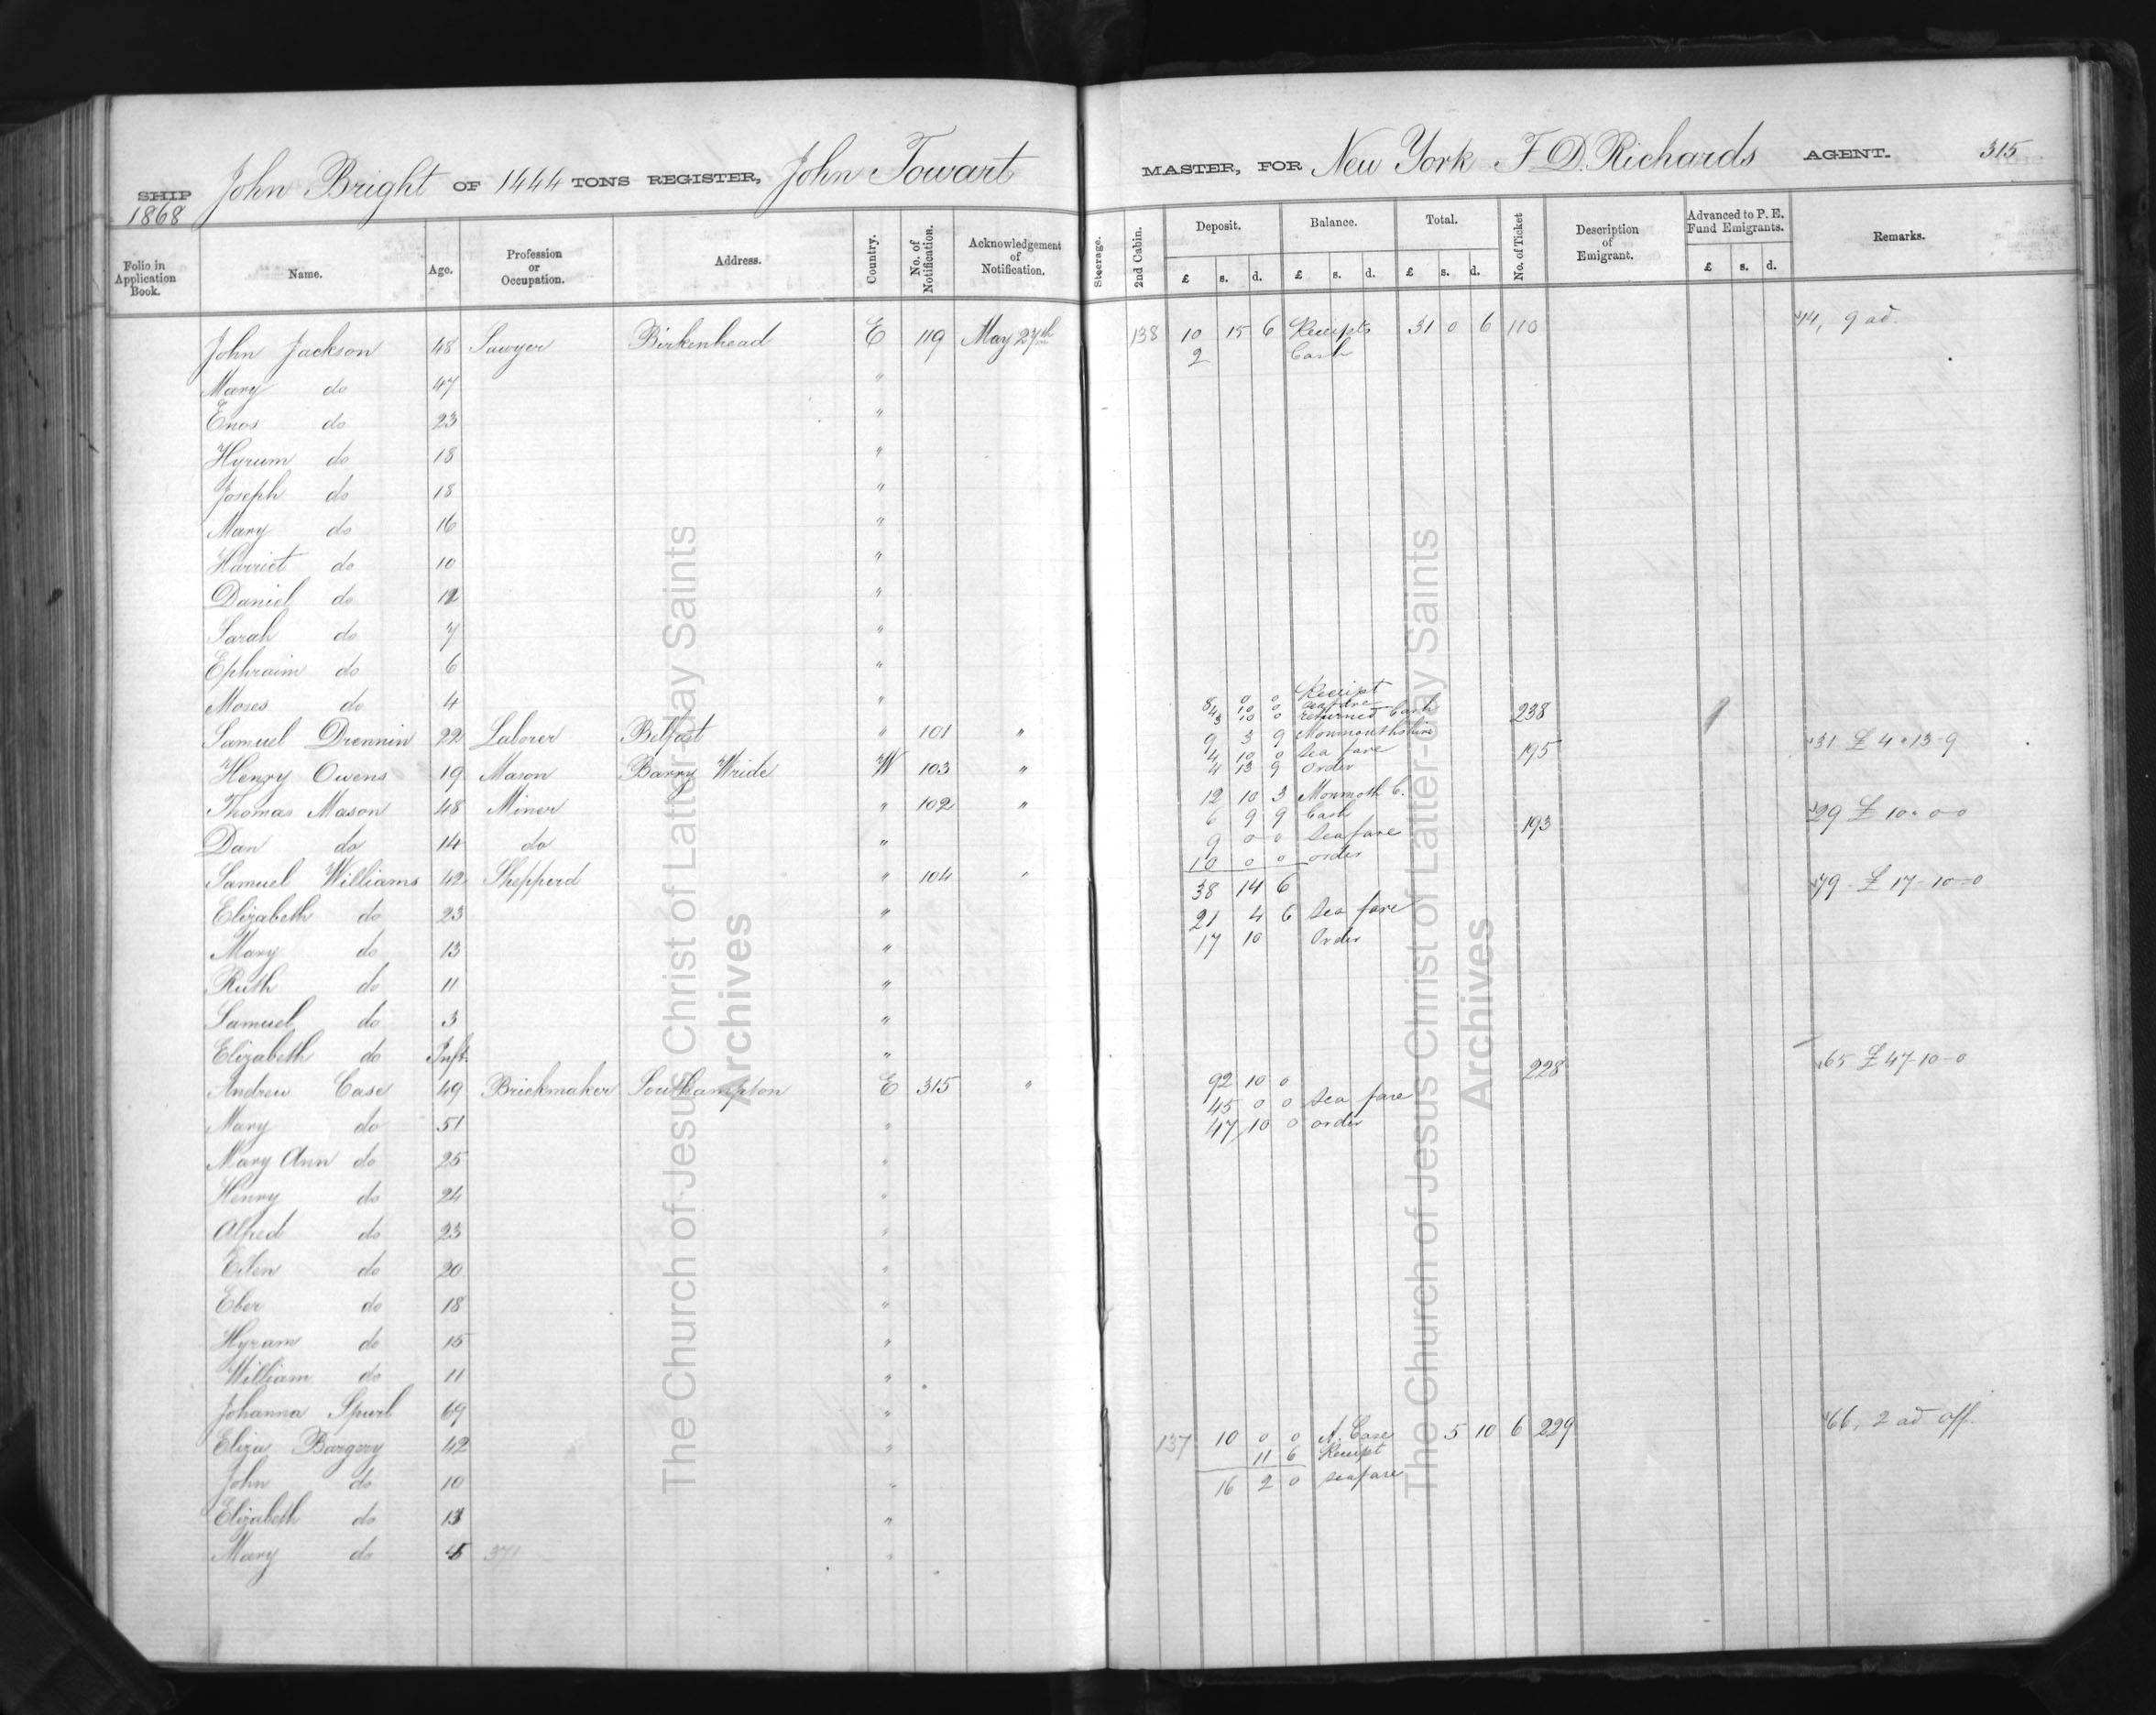 SHIP John Bright OF 1444 TONS REGISTER, John Towart MASTER, FOR New York F D. Richards AGENT. 315
1868
Folio in Application Book. Name. Age. Profession or Occupation. Address. Country. No. of Notification. Acknowledgement of Notification. Steerage. 2nd Cabin. Deposit. £ s. d. Balance. £ s. d. Total. £ s. d. No. of Ticket Description of Emigrant. Advanced to P. E. Fund Emigrants. £ s. d. Remarks.
John Jackson 48 Sawyer Birkenhead E 119 May 27th 138 10 15 6 Receipts 31 0 6 110 44, 9 ad.
2 Cash
Mary do 47 "
Enos do 23 "
Hyrum do 18 "
Joseph do 18 "
Mary do 16 "
Harriet do 10 "
Daniel do 12 "
Sarah do 7 "
Ephraim do 6 "
Moses do 4 "
8 0 0 Receipt
4 10 0 sea fare
3 10 0 returned Cash 238
Samuel Drennin 22 Laborer Belfast " 101 "
9 3 9 Monmouthshire
4 10 0 Sea fare 195 31 £ 4-13-9
Henry Owens 19 Mason Barry Wride W 103 "
4 13 9 order
Thomas Mason 48 Miner " 102 "
12 10 3 Monmoth C.
6 9 9 Cash 193 29 £ 10-0-0
Dan do 14 do "
9 0 0 Sea fare
10 0 0 order
Samuel Williams 42 Shepperd " 104 "
38 14 6 79 - £ 17-10-0
Elizabeth do 23 "
21 4 6 Sea fare
Mary do 13 "
17 10 Order
Ruth do 11 "
Samuel do 3 "
Elizabeth do Inft. "
Andrew Case 49 Brickmaker Southampton E 315 "
92 10 0 228 65 £ 47-10-0
45 0 0 Sea fare
Mary do 51 "
47 10 0 order
Mary Ann do 25 "
Henry do 24 "
Alfred do 23 "
Ellen do 20 "
Eber do 18 "
Hyram do 15 "
William do 11 "
Johanna Spurl 69 "
Eliza Bargery 42 " 137 10 0 0 A. Case 5 10 6 229 66, 2 ad off.
11 6 Receipt
John do 10 "
16 2 0 sea fare
Elizabeth do 13 "
Mary do 5 371 "
The Church of Jesus Christ of Latter-day Saints
Archives
The Church of Jesus Christ of Latter-day Saints
Archives